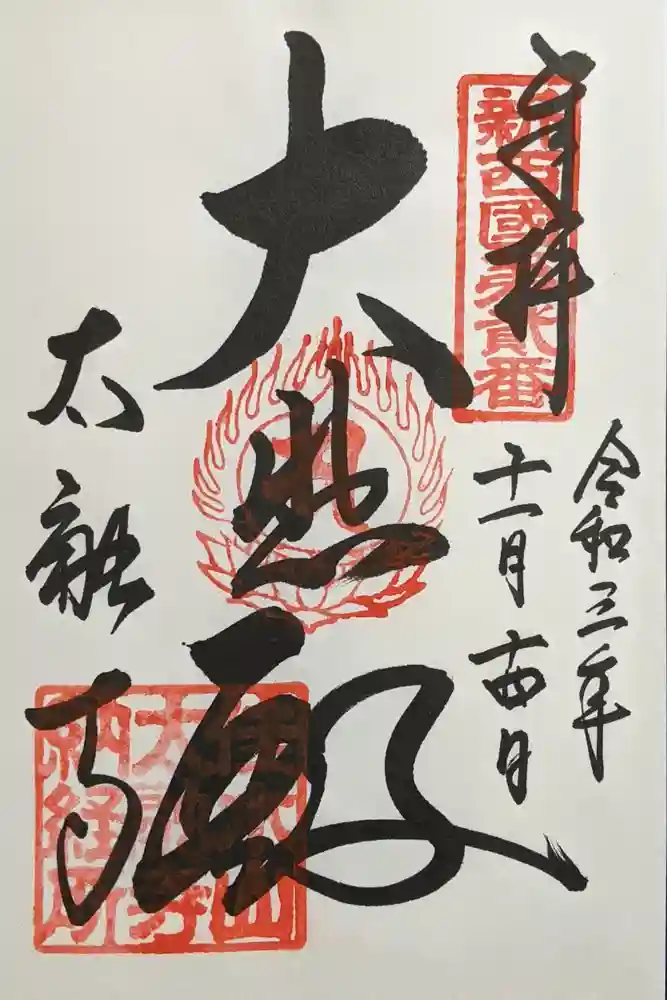 奉拝
新西國第貳番
令和三年
十一月十四日
大悲殿
太融寺
佳木山
太融寺
納経所